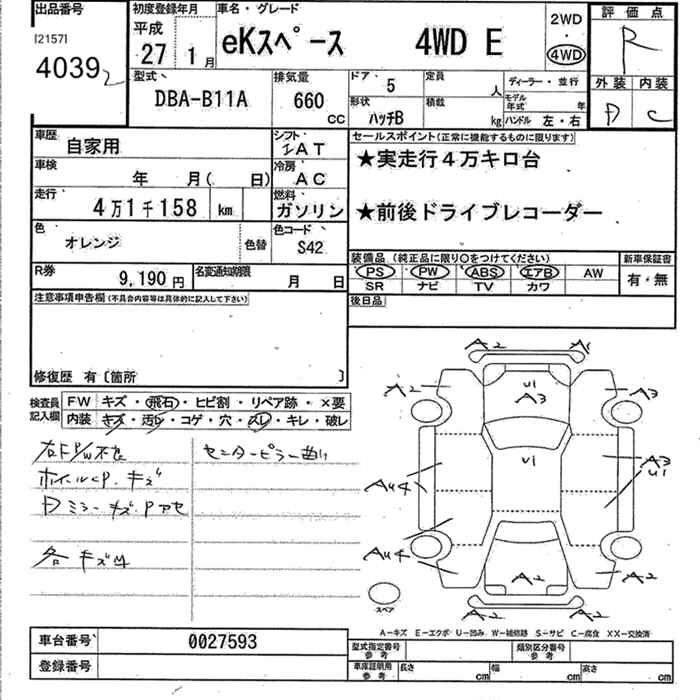 出品番号
[2157]
4039₂
初度登録年月
平成
27 1月
車名・グレード
eKスペース 4WD E
2WD
4WD
評価点
R
外装 内装
D C
型式
DBA-B11A
排気量
660
cc
ドア
5
定員
人
ディーラー・並行
形状
ハッチB
積載
kg
モデル年式 年
ハンドル 左・右
車歴
自家用
シフト
IAT
セールスポイント(正常に機能するものに限ります)
★実走行4万キロ台
★前後ドライブレコーダー
車検
年 月( 日)
冷房
AC
走行
4万1千158 km
燃料
ガソリン
色
オレンジ
色替
色コード
S42
R券
9,190 円
名変通知期限
月 日
装備品(純正品に限り○をつけてください)
新車保証書
PS PW ABS エアB AW
SR ナビ TV カワ
有・無
後日品
注意事項申告欄(不具合内容等は具体的に記入して下さい)
修復歴 有〔箇所 〕
検査員記入欄
FW キズ・飛石・ヒビ割・リペア跡・×要
内装 キズ・汚レ・コゲ・穴・スレ・キレ・破レ
右F P/W不良
センターピラー曲り
ホイールCP.キズ
Dミラーキズ.Pアセ
各キズ凹
A2 A1
A2 U1 A3 A3
U1 A3 U1
AU4
AU4
A2 A2
A2 A2
スペア
A-キズ E-エクボ U-凹み W-補修跡 S-サビ C-腐食 XX-交換済
車台番号
0027593
登録番号
型式指定番号 参考
類別区分番号 参考
車庫証明用 参考
長さ cm 幅 cm 高さ cm